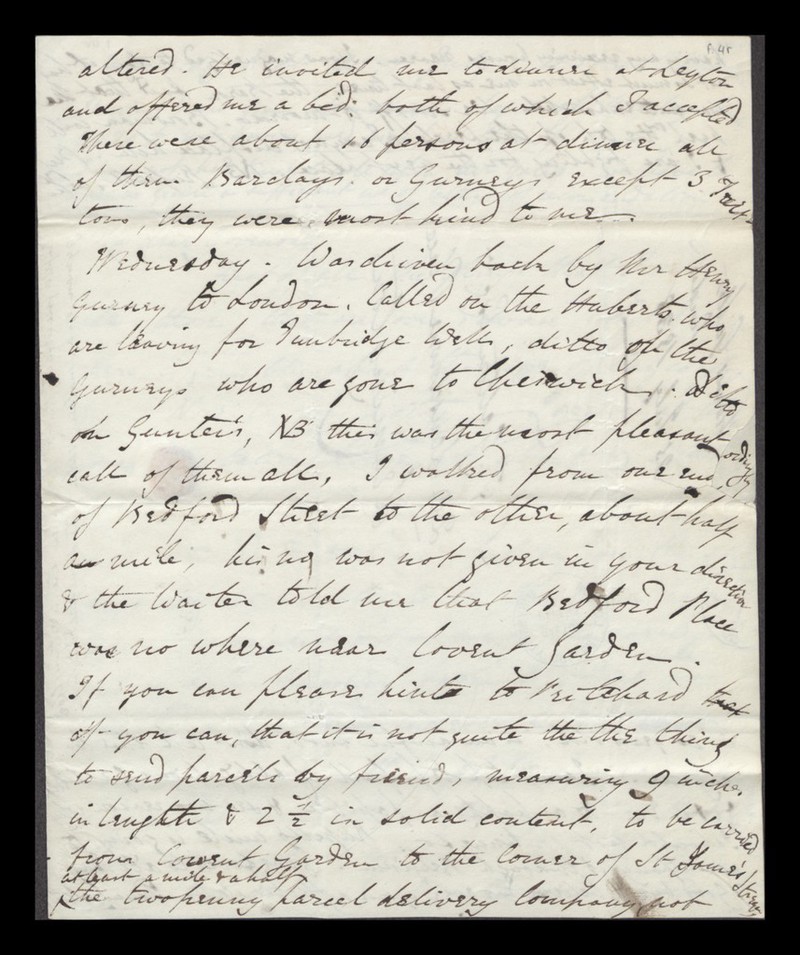 altered. He invited me to dinner at Leyton
and offered me a bed: both of which I accepted
There were about 16 persons at dinner all
of them Barclays or Gurneys except 3
they were most kind to me.
Wednesday. Was driven back by Mr Henry
Gurney to London. Called on the Huberts. who
are leaving for Tunbridge Wells, ditto on the
Gurneys who are gone to Cheswick. Ditto
on Gunter's, NB this was the most pleasant
call of them all, I walked from one end,
of Bedford Street to the other, about half
a mile, his no was not given in your direction
& the Waiter told me that Bedford Place
was no where near Covent Garden.
If you can please hint to Pritchard
if you can, that it is not quite the the thing
to send parcels by friend, measuring 9 inche.
in lenghth & 2 1/2 in solid content, to be carried
from Covent Garden to the Corner of St James's Street,
at least a mile & a half
the twopenny parcel delivery Company not